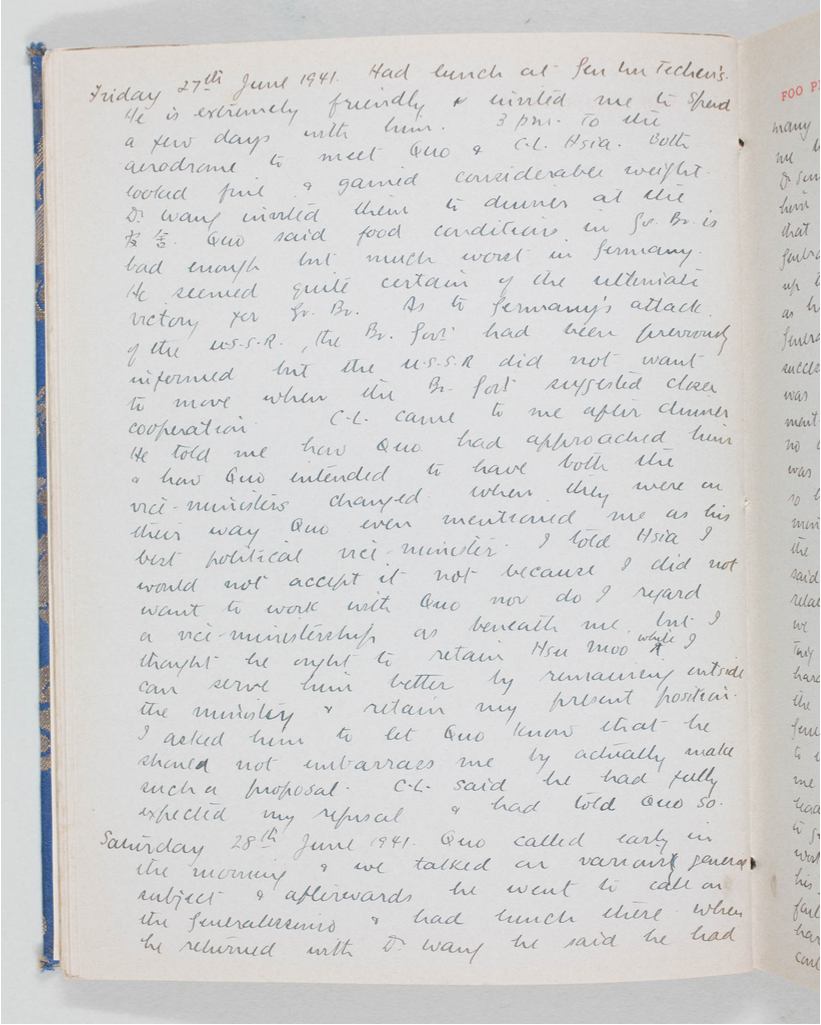 Friday 27th June 1941. Had lunch at Gen Liu Techen's.
He is extremely friendly & invited me to spend
a few days with him. 3 p.m. To the
aerodrome to meet Quo & C.L. Hsia. Both
looked fine & gained considerable weight.
Dr Wang invited them to dinner at the
舍. Quo said food conditions in Gr. Br. is
bad enough but much worst in Germany.
He seemed quite certain of the ultimate
victory for Gr. Br. As to Germany's attack
of the U.S.S.R., the Br. Govt had been previously
informed but the U.S.S.R did not want
to move when the Br. Govt suggested closer
cooperation C.L. came to me after dinner
He told me how Quo had approached him
& how Quo intended to have both the
vice-ministers changed when they were on
their way Quo even mentioned me as his
best political vice-minister. I told Hsia I
would not accept it not because I did not
want to work with Quo nor do I regard
a vice-ministership as beneath me, but I
thought he ought to retain Hsu Moo while I
can serve him better by remaining outside
the ministry & retain my present position.
I asked him to let Quo know that he
should not embarrass me by actually make
such a proposal. C.L. said he had fully
expected my refusal & had told Quo so.
Saturday 28th June 1941. Quo called early in
the morning & we talked on various general
subject & afterwards he went to call on
the Generalissimo & had lunch there. When
he returned with Dr Wang he said he had
FOO P
many
me
him
that
up
as
was
no
was
so
the
said
we
the
to
me
his